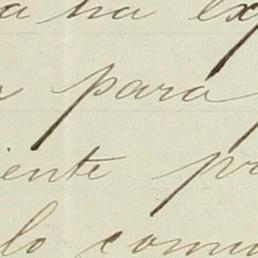 ha ex
para
iente pr
lo comu